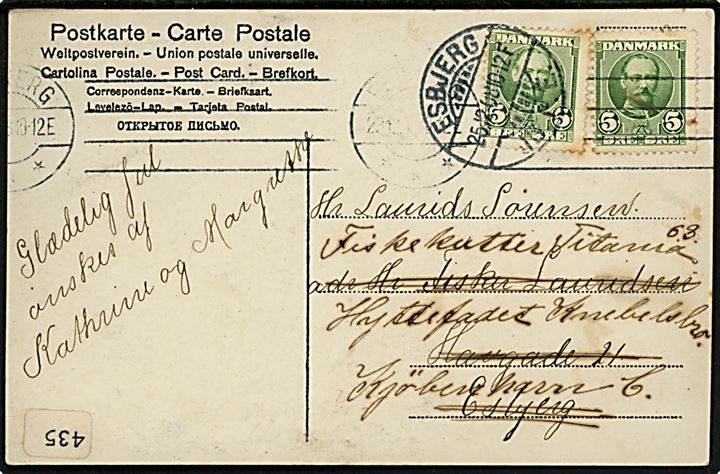 Postkarte - Carte Postale
Weltpostverein. - Union postale universelle.
Cartolina Postale. - Post Card. - Brefkort.
Correspondenz-Karte. - Briefkaart.
Levelező-Lap. - Tarjeta Postal.
ОТКРЫТОЕ ПИСЬМО.
ESBJERG
DANMARK
5 5
DANMARK
5 5
ØRE ØRE
10-12E
Glædelig Jul
ønskes af
Kathrine og Margrethe
Hr Laurids Sørensen.
Fiskekutter Titania 63.
adr Hr Lauridsen
Hyttefadet Knebelsbro.
Havgade 21
Kjöbenhavn C.
Esbjerg
435